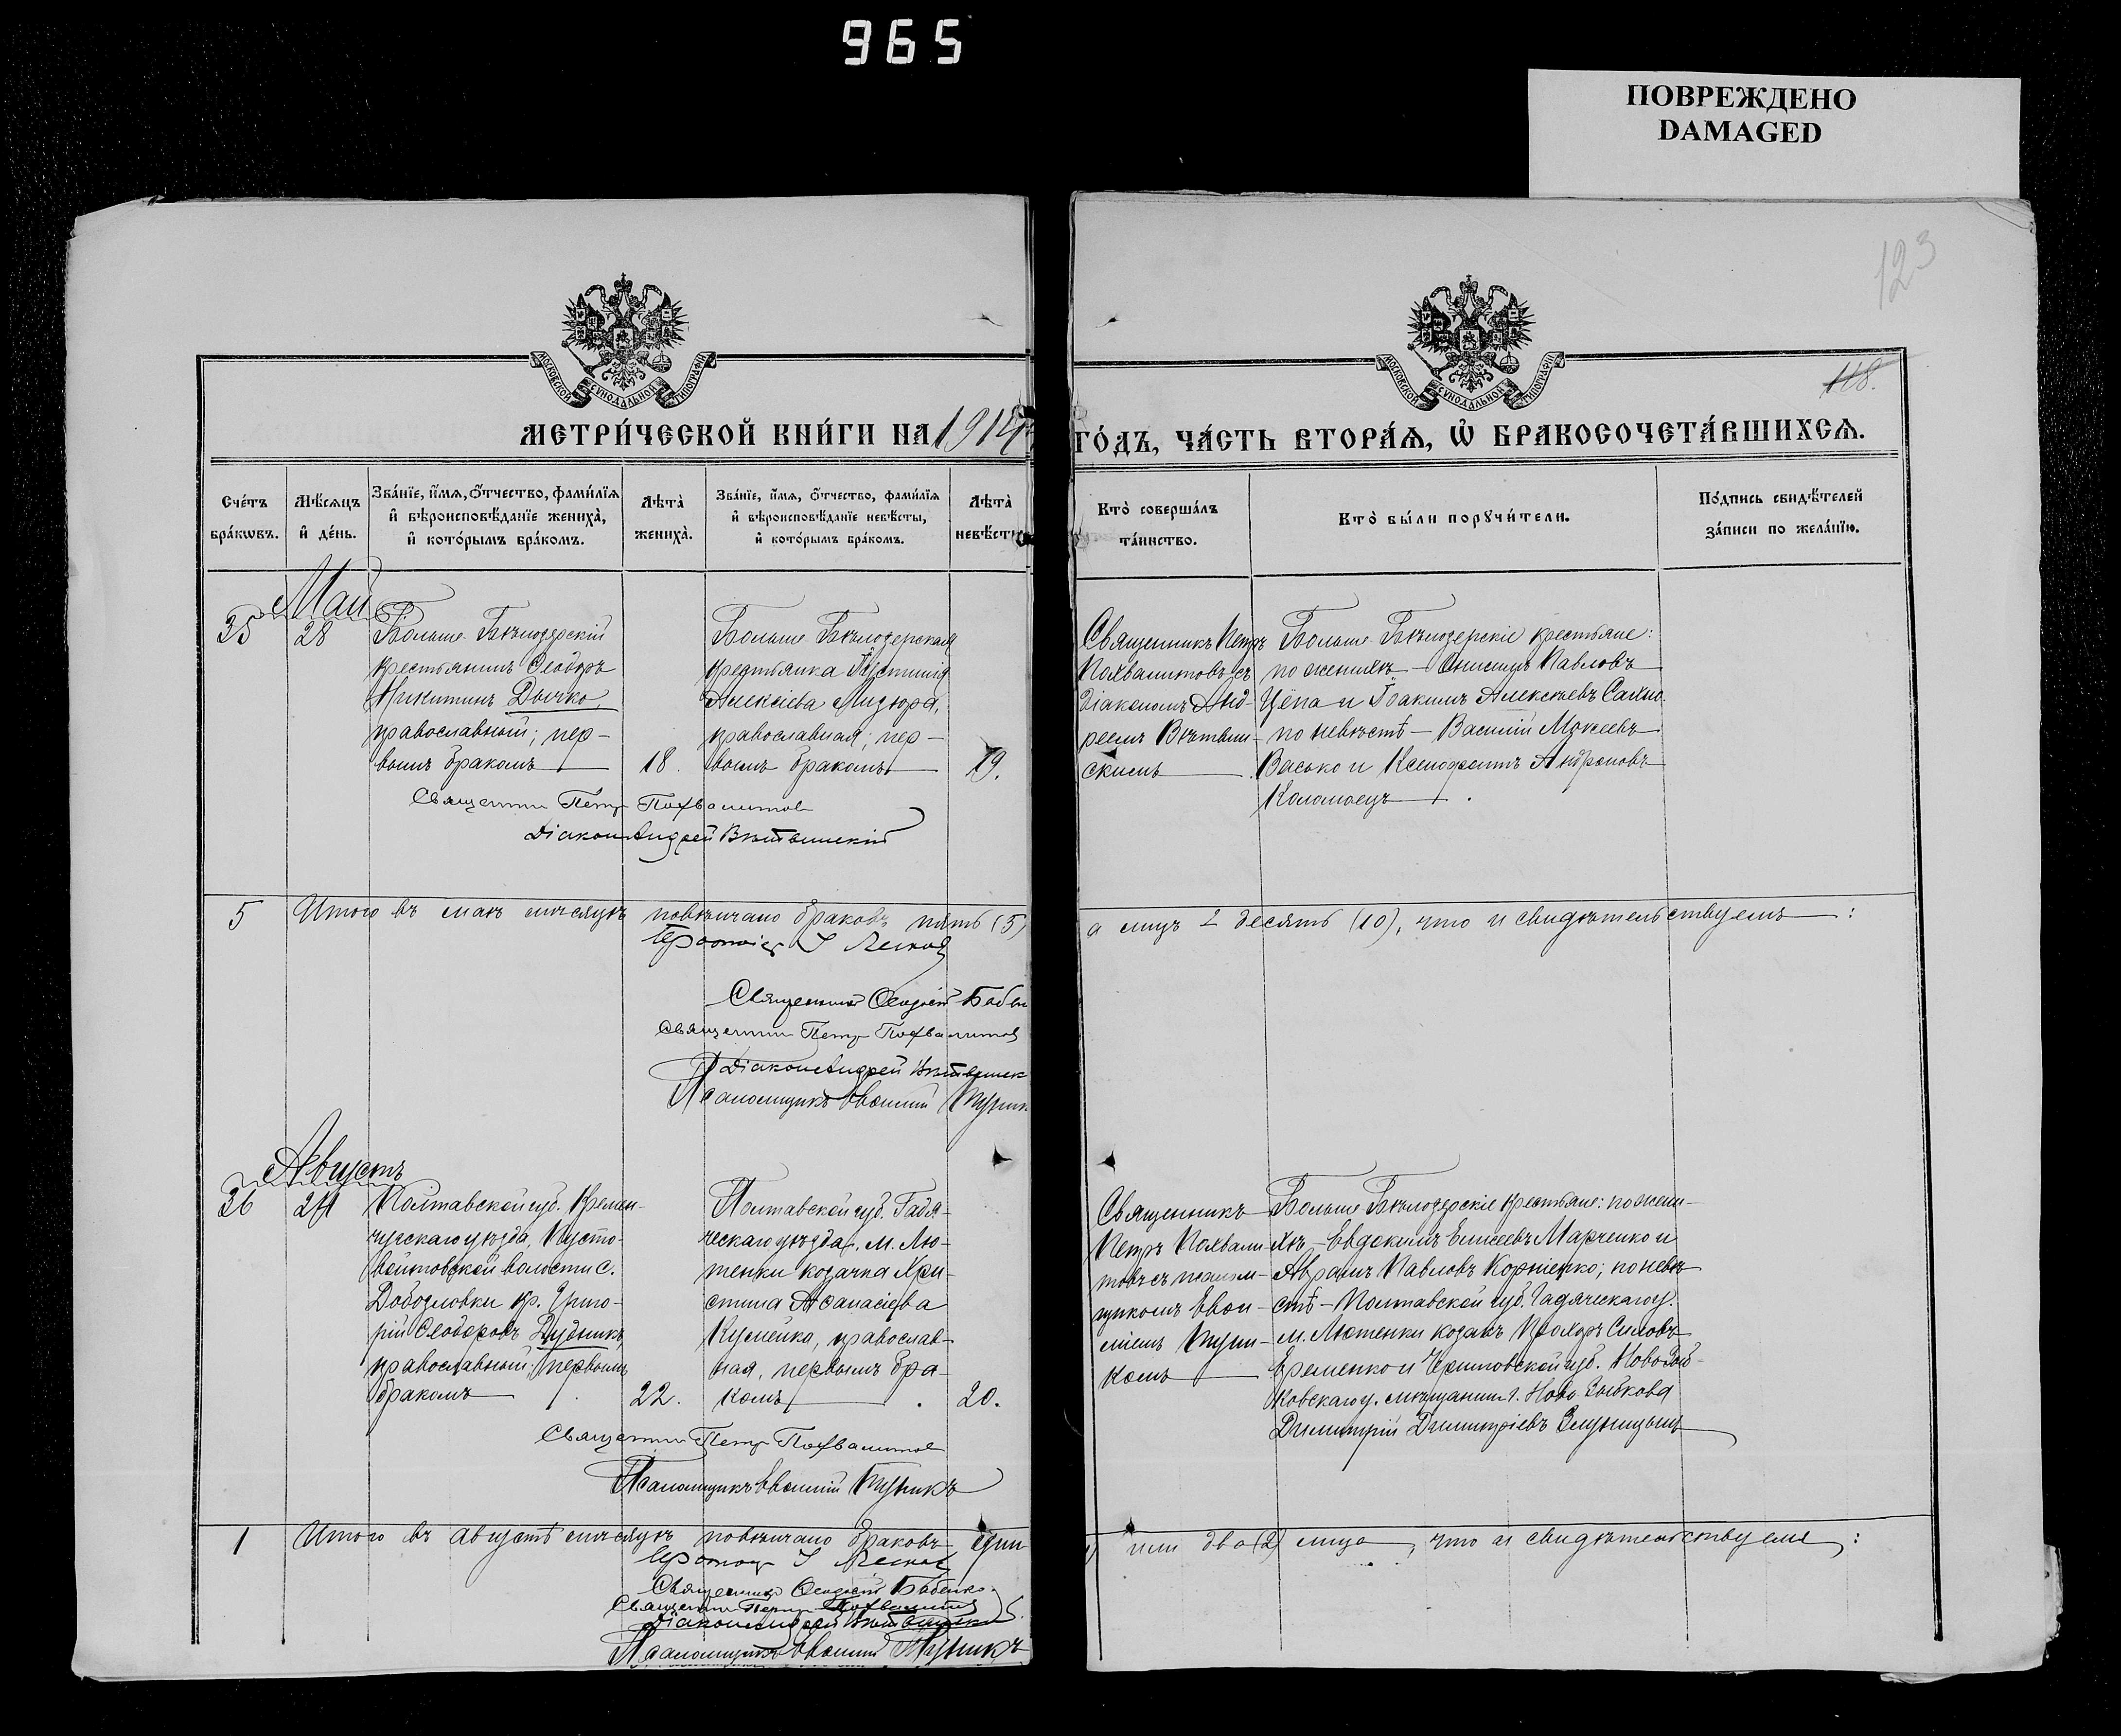 965
ПОВРЕЖДЕНО
DAMAGED
123
118.
МОСКОВСКОЙ СѴНОДАЛЬНОЙ ТИПОГРАФІИ
МОСКОВСКОЙ СѴНОДАЛЬНОЙ ТИПОГРАФІИ
МЕТРИ́ЧЕСКОЙ КНИ́ГИ НА 1914
ГО́ДЪ, ЧА́СТЬ ВТОРА́Ѧ, Ѡ҆ БРАКОСОЧЕТА́ВШИХСѦ.
Сче́тъ бра́кѡвъ.
Мѣ́сѧцъ и҆ де́нь.
Зва́нїе, и҆́мѧ, ѻ҆́тчество, фами́лїѧ
и҆ вѣроисповѣ́данїе жениха̀,
и҆ кото́рымъ бра́комъ.
Лѣта̀ жениха̀.
Зва́нїе, и҆́мѧ, ѻ҆́тчество, фами́лїѧ
и҆ вѣроисповѣ́данїе невѣ́сты,
и҆ кото́рымъ бра́комъ.
Лѣта̀ невѣ́сты
Кто̀ соверша́лъ
та́инство.
Кто̀ бы́ли порꙋчи́тели.
По́дпись свидѣ́телей
за́писи по жела́нїю.
Май
35
28
Больше-Бѣлозерскій
крестьянинъ Ѳеодоръ
Никитинъ Дычко,
православный; пер-
вымъ бракомъ
18.
Больше Бѣлозерская
крестьянка Іустинія
Алексіева Мизюра,
православная; пер-
вымъ бракомъ
19.
Священникъ Петръ
Похвалитовъ съ
діакономъ Анд-
реемъ Вѣтвин-
скимъ
Больше Бѣлозерскіе крестьяне:
по женихѣ - Онисимъ Павловъ
Цёпа и Іоакимъ Алексѣевъ Сахно.
по невѣстѣ - Василій Моисеевъ
Васько и Ксенофонтъ Андроновъ
Коломоецъ
Священник Петр Похвалитов
Діакон Андрей Вѣтвинскій
5
Итого въ маѣ мѣсяцѣ повѣнчано браковъ пять (5)
а лицъ десять (10), что и свидѣтельствуемъ:
Священник Ѳеодосій Бабен
Священник Петр Похвалитов
Діакон Андрей Вѣтвинск
Псаломщикъ Евѳимій
Августъ
36
24
Полтавской губ. Кремен-
чугскаго уѣзда, Пусто-
войтовской волости с.
кр. Григо-
рій Ѳеодоровъ Дудникъ,
православный; первымъ
бракомъ
22.
Полтавской губ. Гадя-
ческаго уѣзда, м. Лю-
теньки козачка Хри-
стина Аѳанасіева
православ-
ная, первымъ бра-
комъ
20.
Священникъ
Петръ Похвали-
товъ съ псалом-
щикомъ Евѳи-
міемъ
комъ
Больше Бѣлозерскіе крестьяне: по жени-
хѣ - Евдокимъ Елисеевъ Марченко и
Аврамъ Павловъ Корніенко; по невѣ-
стѣ - Полтавской губ. Гадяческаго у.
м. Лютенки козакъ Прохоръ Силовъ
Еременко и Черниговской губ. Новозыб-
ковскаго у. мѣщанинъ г. Ново-Зыбкова
Димитрій Димитріевъ
Священник Петр Похвалитов
Псаломщикъ Евѳимій
1
Итого въ августѣ мѣсяцѣ повѣнчано браковъ един
или два (2) лица, что и свидѣтельствуемъ:
Священник Ѳеодосій Бабенко
Священник Петр Похвалитов
Діакон Андрей Вѣтвинскій
Псаломщикъ Евѳимій